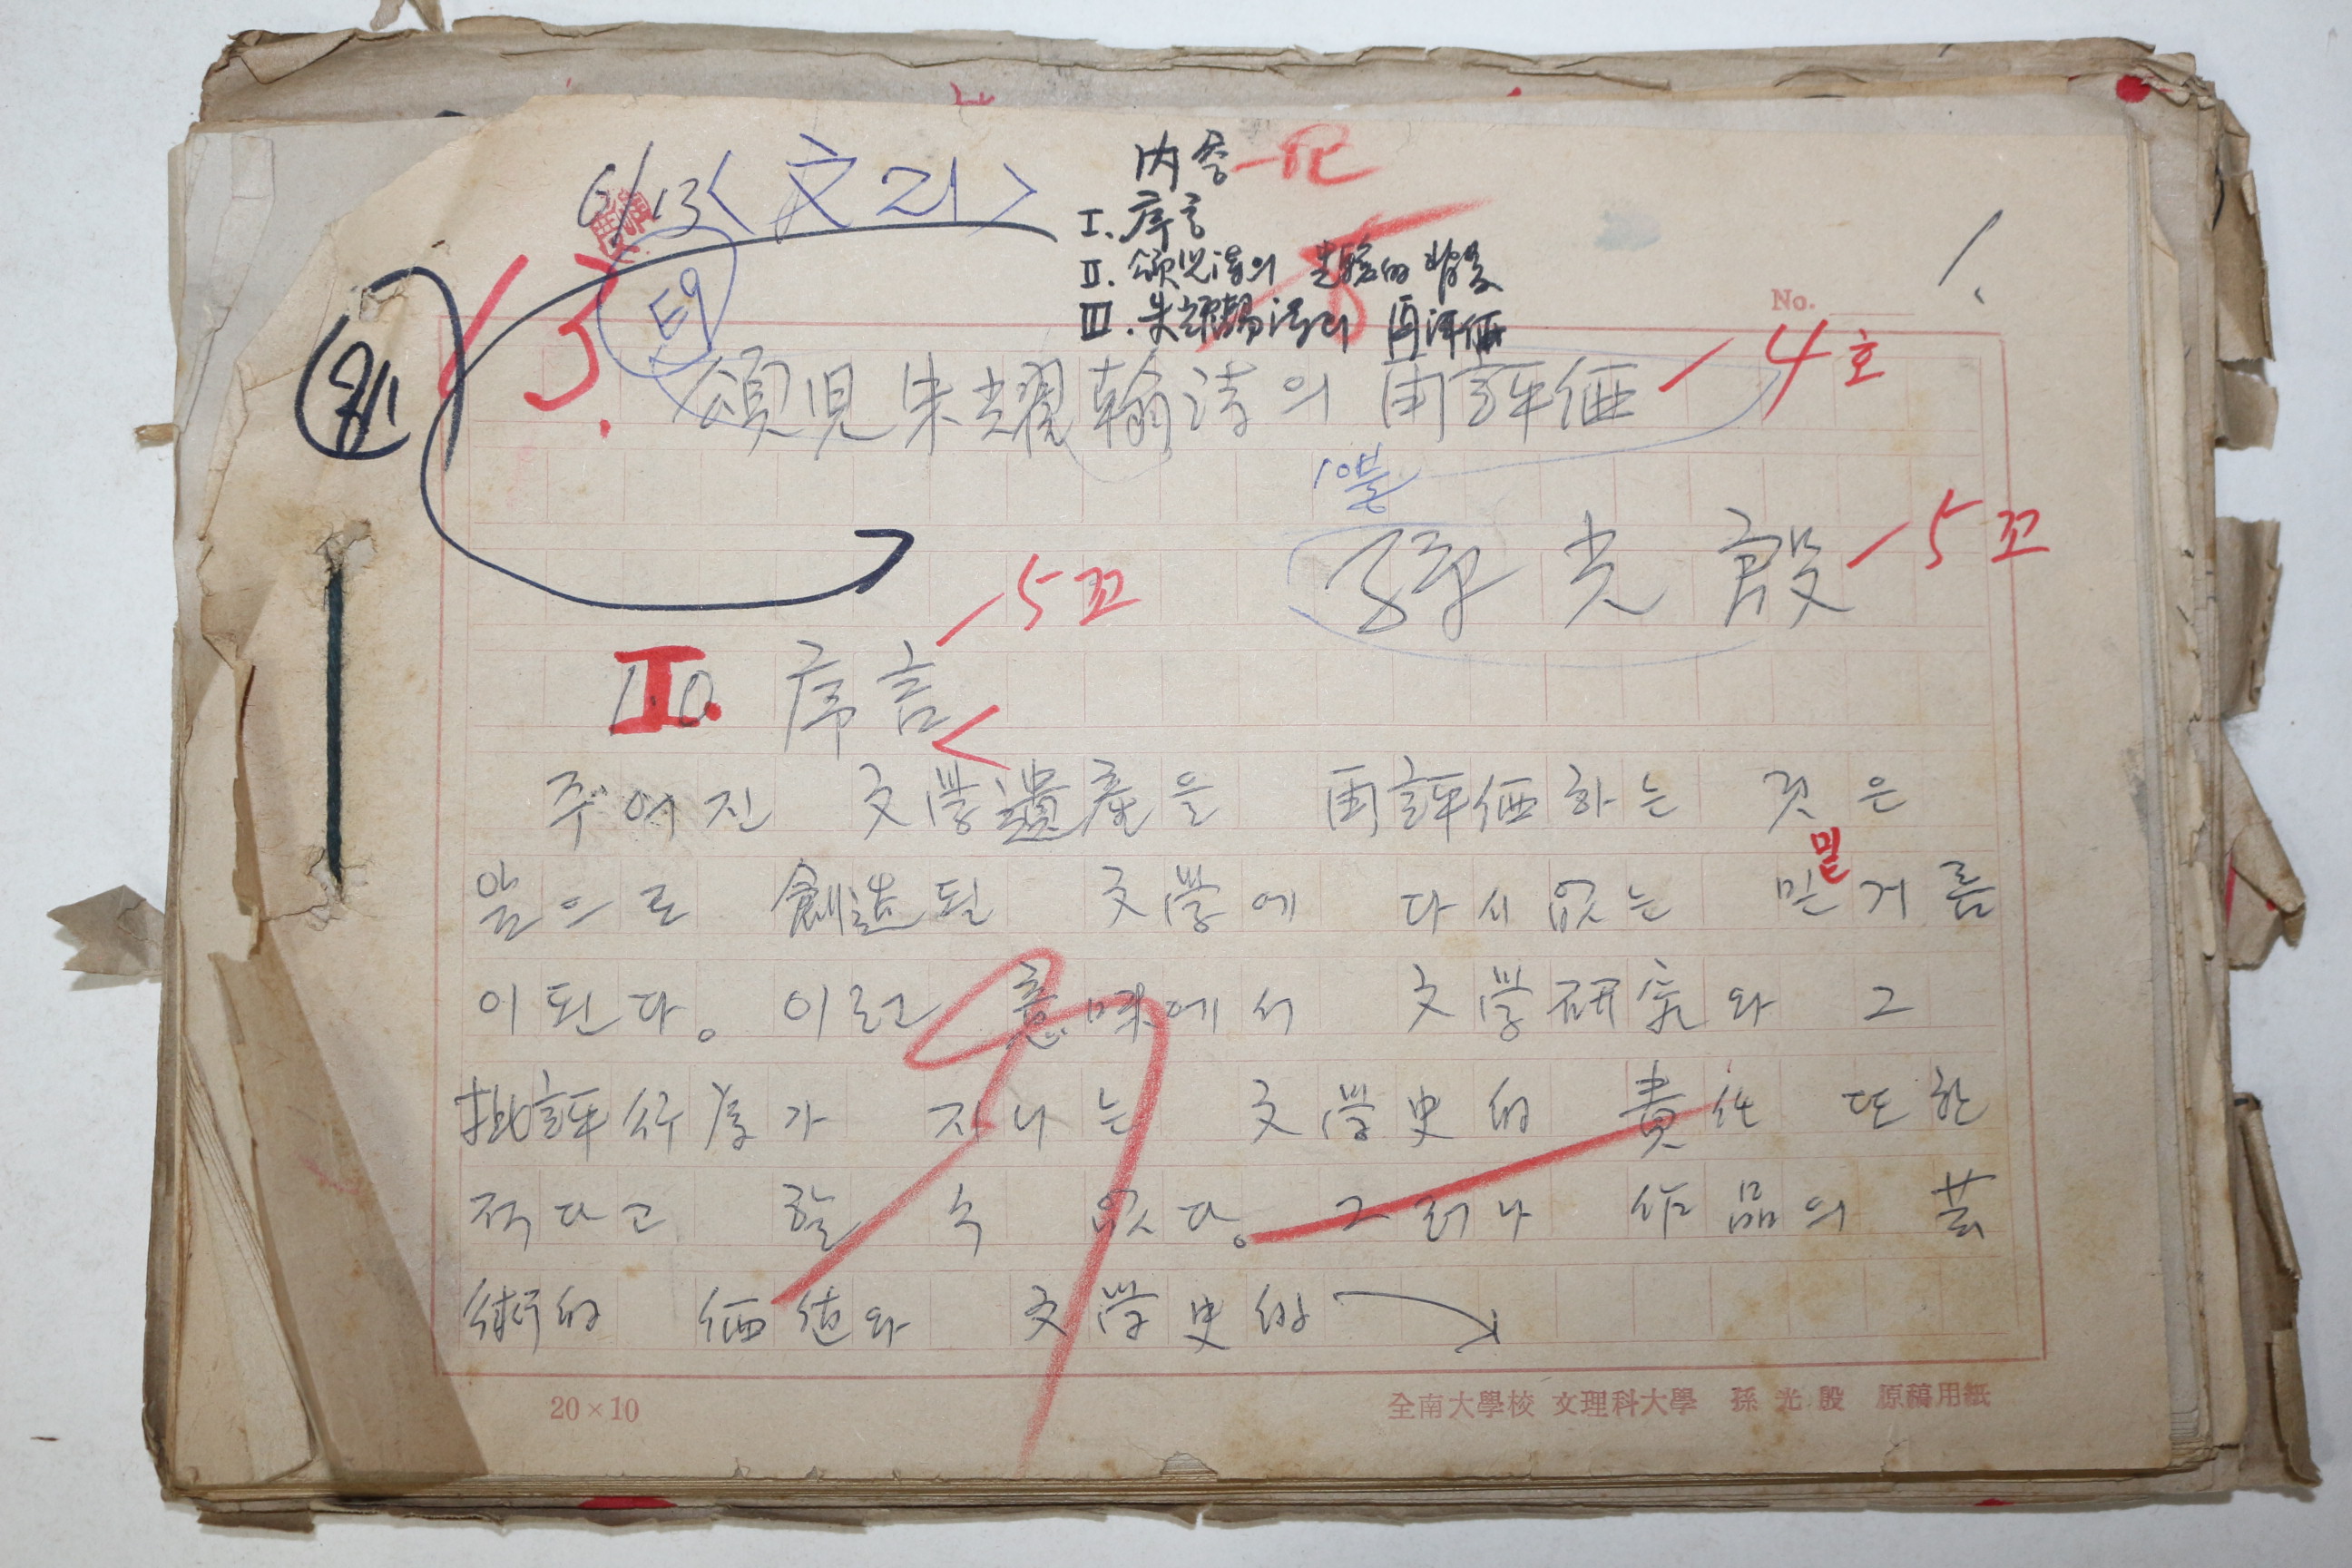 6/13 <文리>
內容
I. 序言
II. 頌兒詩의 的 背景
III. 朱耀翰詩의 再評価
1.
No.
E9
頌児 朱耀翰 詩의 再評価 4호
10분
孫 光 殷 5꼬
I. 序言 5꼬
주어진 文學遺産을 再評価하는 것은
앞으로 創造될 文學에 다시없는 믿거름
밑
이된다。 이런 意味에서 文學硏究와 그
批評行爲가 지니는 文學史的 責任 또한
적다고 할 수 없다。 그러나 作品의 芸
術的 価値와 文學史的
20×10
全南大學校 文理科大學 孫 光 殷 原稿用紙